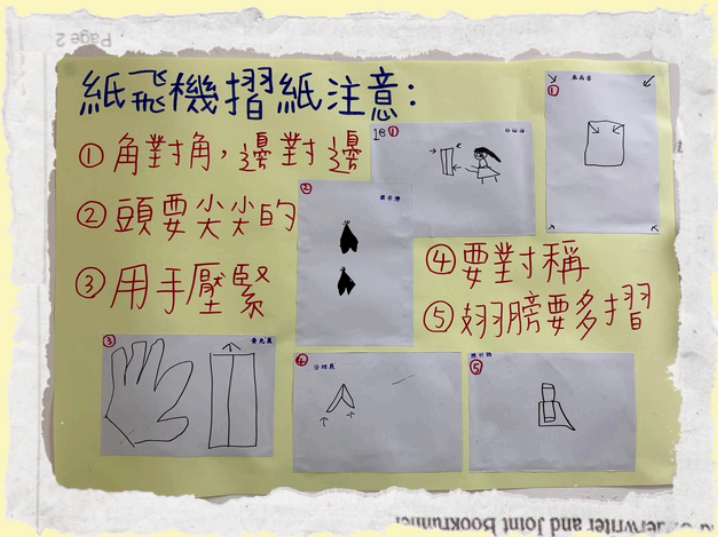 紙飛機摺紙注意:
① 角對角,邊對邊
② 頭要尖尖的
③ 用手壓緊
④ 要對稱
⑤ 翅膀要多摺
①
①
②
③
④
⑤
Page 2
and Joint Bookrunner